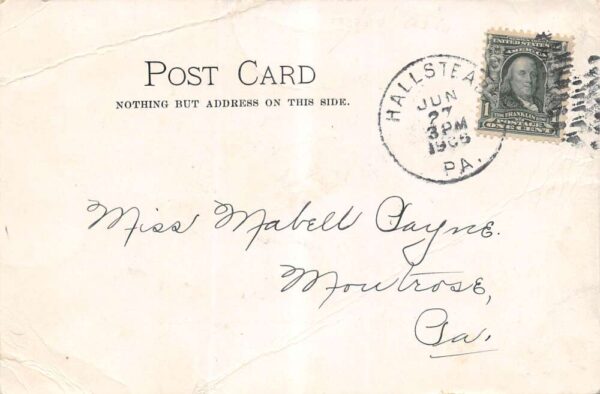 POST CARD
NOTHING BUT ADDRESS ON THIS SIDE.
HALLSTEA
JUN
27
3 PM
PA.
UNITED STATES
OF AMERICA
1
FRANKLIN
POSTAGE
ONE CENT
Miss Mabell Payne.
Montrose,
Pa.